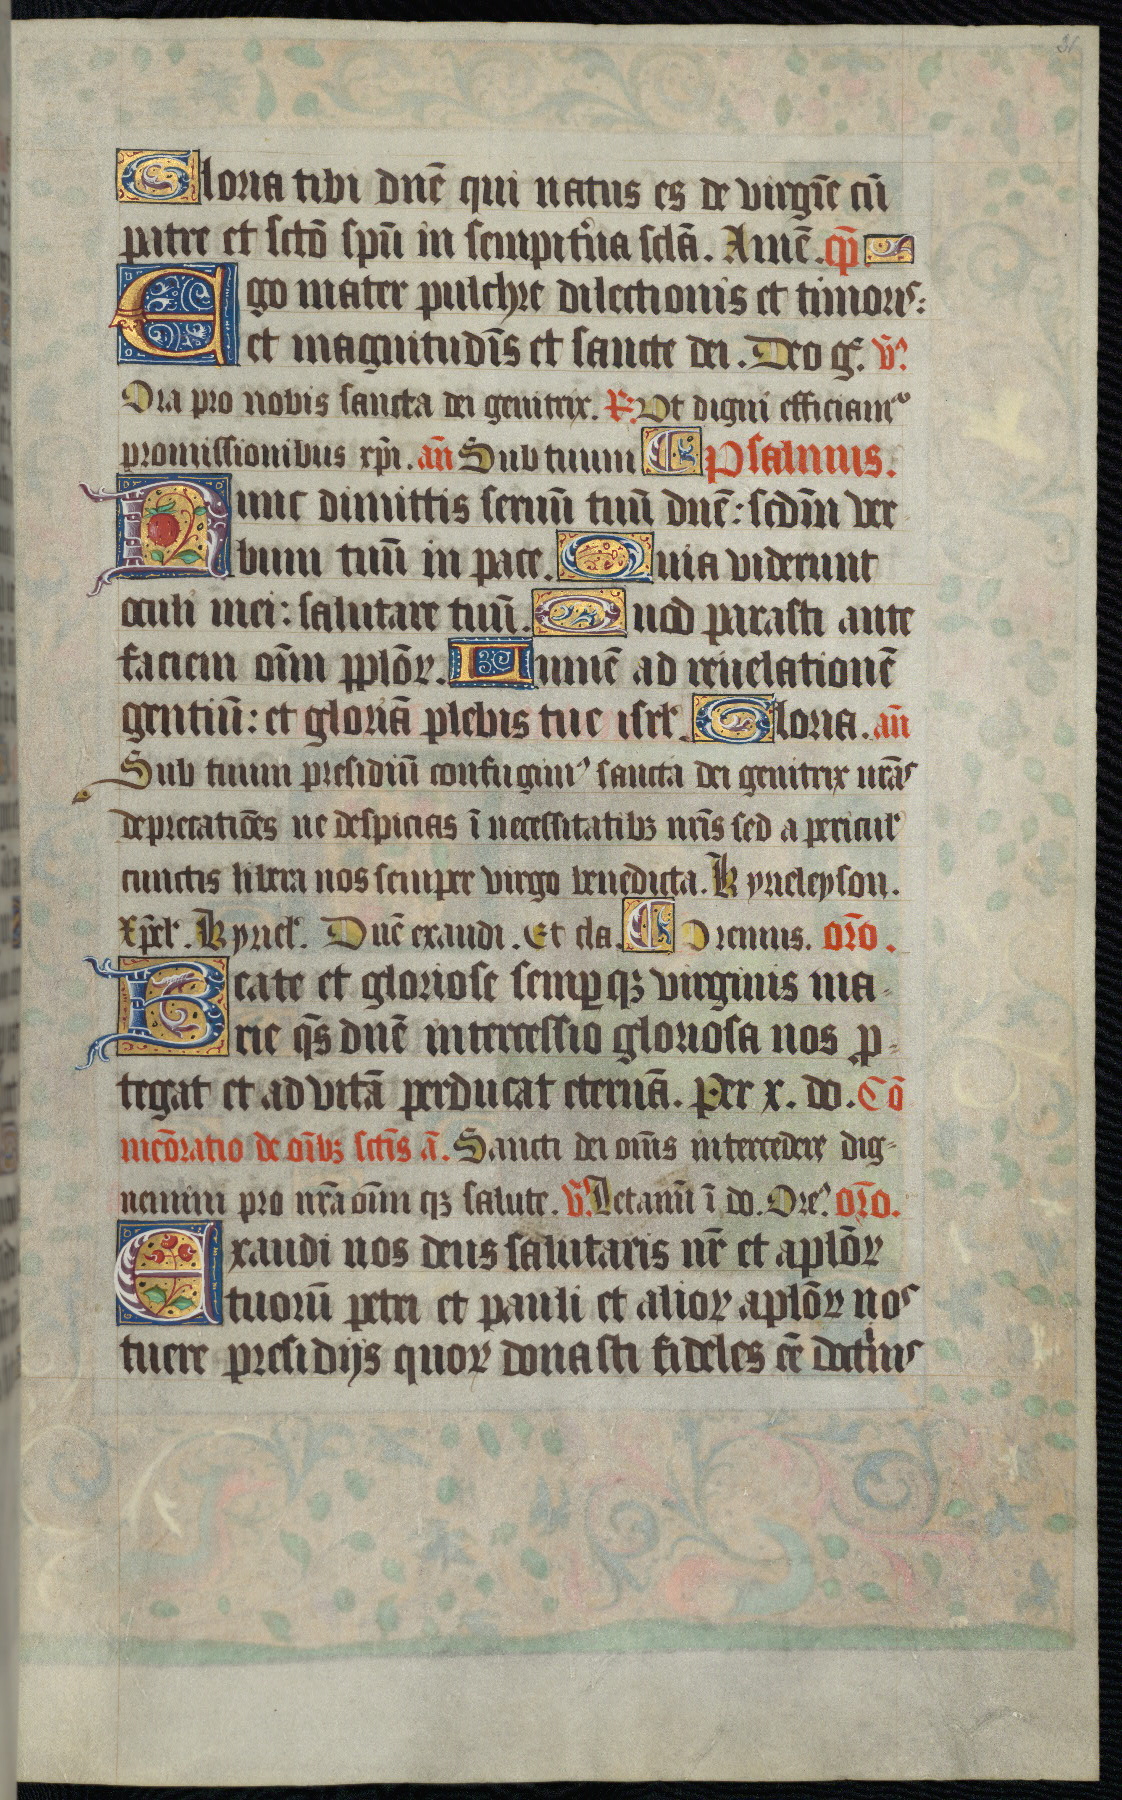 Gloria tibi dnē qui natus es de virgīe cū
patre et sctō spū in sempit'na sclā. Amē. cp̄.
Ego mater pulchre dilectionis et timoris:
et magnitudīs et sancte dei. Deo gr̄. v̄.
Ora pro nobis sancta dei genitrix. R̄. Ut digni efficiam'
promissionibus xp̄i. an̄ Sub tuum Psalmus.
Nunc dimittis seruū tuū dnē: scdm̄ ver
bum tuū in pace. Quia viderunt
oculi mei: salutare tuū. Quod parasti ante
faciem oīm pplōꝝ. Lumē ad reuelationē
gentiū: et gloriā plebis tue isrl. Gloria. an̄
Sub tuum presidiū confugim' sancta dei genitrix nrās
deprecatiōes ne despicias ī necessitatibꝫ nrīs sed a pericul'
cunctis libera nos semper virgo benedicta. Kyrieleyson.
xp̄el'. Kyriel'. Dnē exaudi. Et cla. Oremus. orō.
Beate et gloriose semꝑqꝫ virginis ma-
rie qs̄ dnē intercessio gloriosa nos ꝓ-
tegat et ad vitā perducat eternā. Per x. do. Cō
mēoratio de oībꝫ sctīs ā. Sancti dei oms̄ intercedere dig-
nemini pro nrā oīm qꝫ salute. v̄. Letamī ī do. Ore'. orō.
Exaudi nos deus salutaris nr̄ et aplōꝝ
tuorū petri et pauli et alioꝝ aplōꝝ nos
tuere presidijs quoꝝ donasti fideles eē doct'nis